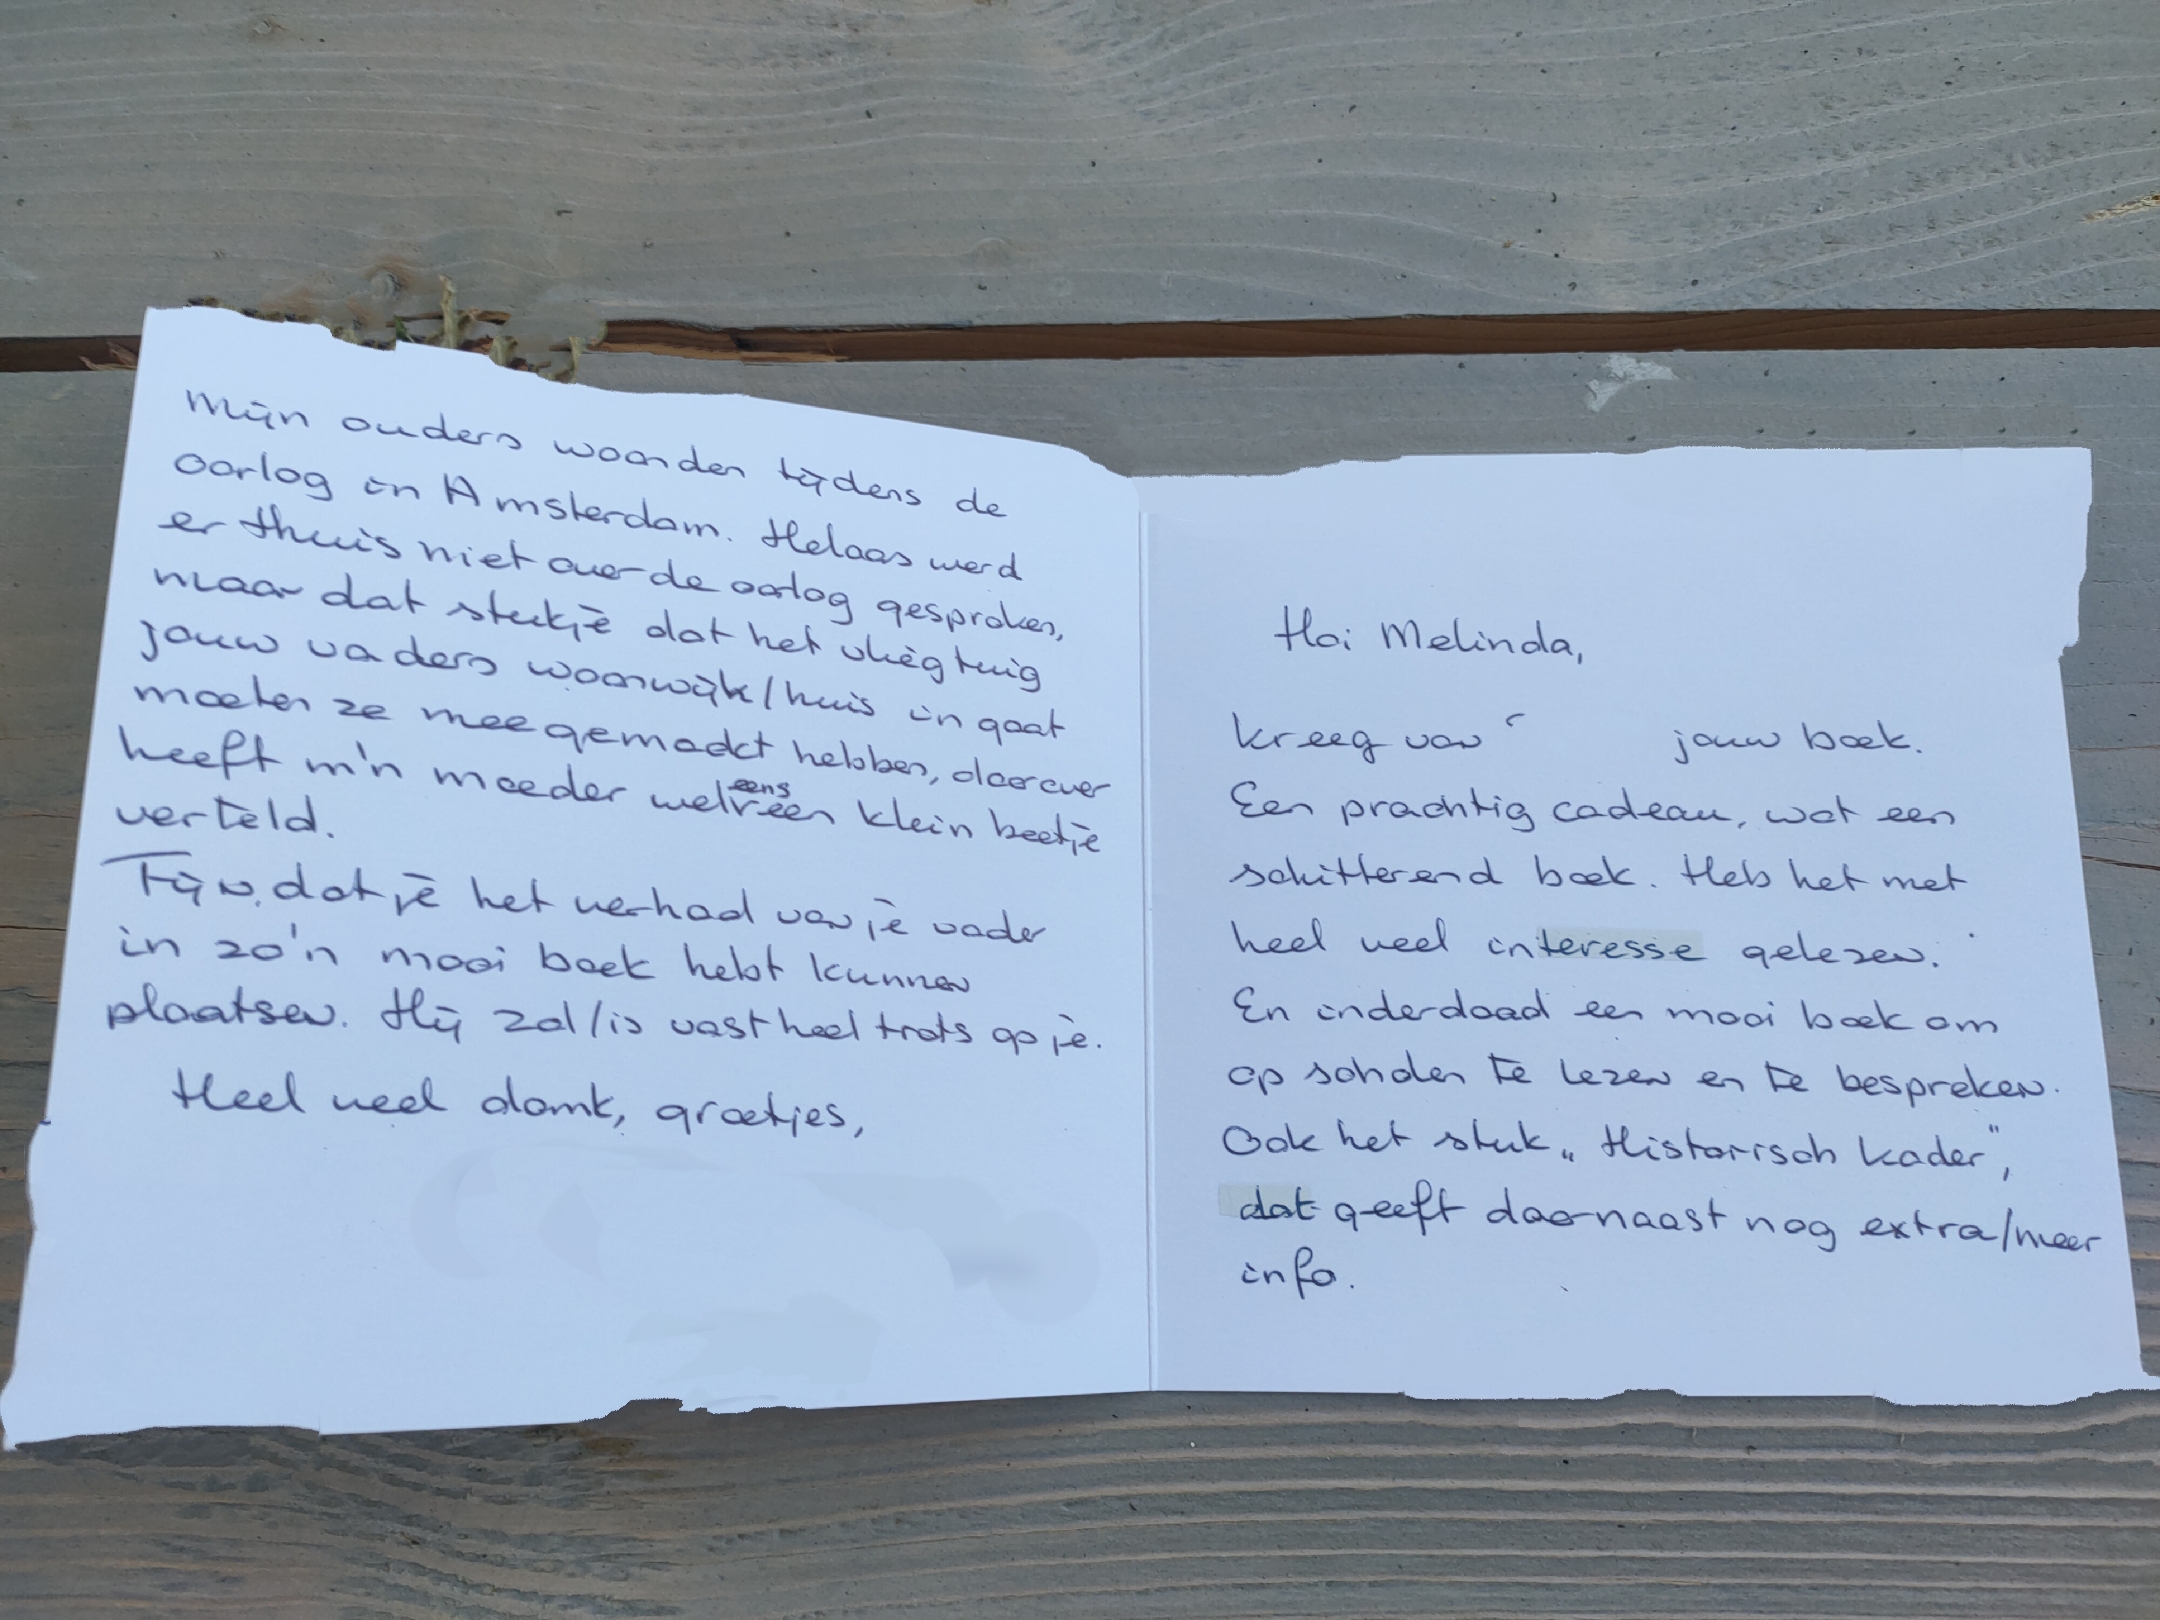 Mijn ouders woonden tijdens de
oorlog in Amsterdam. Helaas werd
er thuis niet over de oorlog gesproken,
maar dat stukje dat het vliegtuig
jouw vaders woonwijk/huis in gaat
moeten ze meegemaakt hebben, daarover
heeft m'n moeder wel eens een klein beetje
verteld.
Fijn, dat je het verhaal van je vader
in zo'n mooi boek hebt kunnen
plaatsen. Hij zal/is vast heel trots op je.
Heel veel dank, groetjes,
Hoi Melinda,
kreeg van jouw boek.
Een prachtig cadeau, wat een
schitterend boek. Heb het met
heel veel interesse gelezen.
En inderdaad een mooi boek om
op scholen te lezen en te bespreken.
Ook het stuk „Historisch kader",
dat geeft daarnaast nog extra/meer
info.